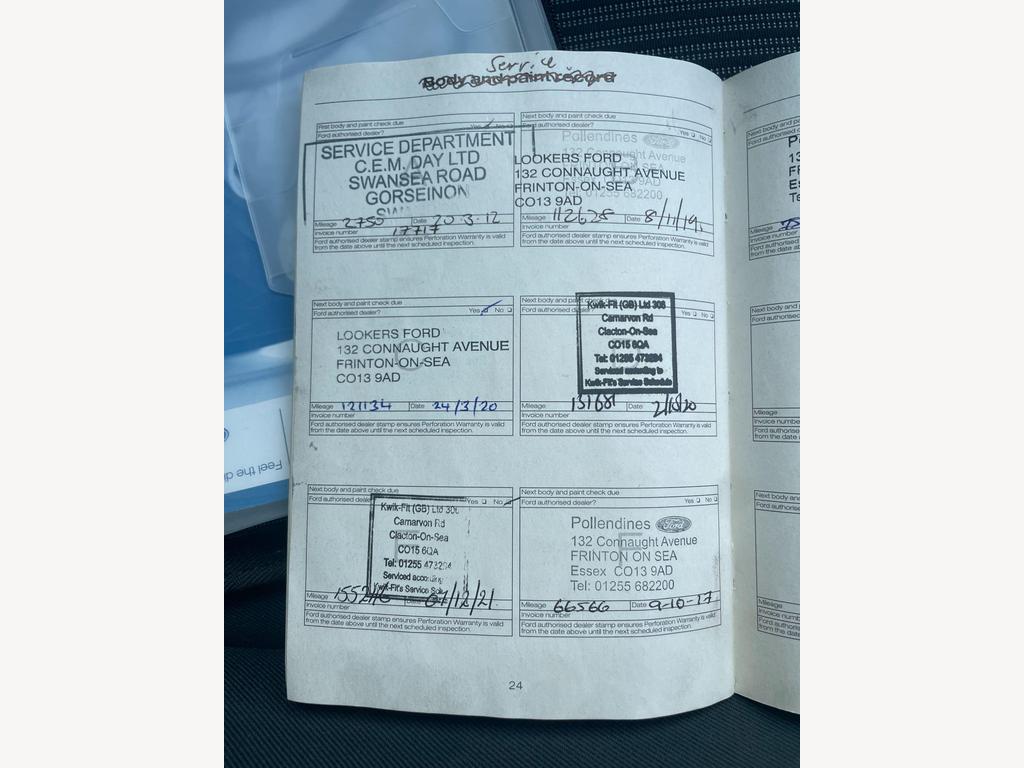 Service
Body and paint record
First body and paint check due
Ford authorised dealer? Yes No
SERVICE DEPARTMENT
C.E.M. DAY LTD
SWANSEA ROAD
GORSEINON
Mileage 2750 Date 20-3-12
Invoice number 17717
Ford authorised dealer stamp ensures Perforation Warranty is valid
from the date above until the next scheduled inspection.
Next body and paint check due
Ford authorised dealer? Yes No
Pollendines Ford
132 Connaught Avenue
FRINTON ON SEA
Essex CO13 9AD
Tel: 01255 682200
LOOKERS FORD
132 CONNAUGHT AVENUE
FRINTON-ON-SEA
CO13 9AD
Mileage 112628 Date 8/11/19
Invoice number
Ford authorised dealer stamp ensures Perforation Warranty is valid
from the date above until the next scheduled inspection.
Next body and paint check due
Ford authorised dealer? Yes No
LOOKERS FORD
132 CONNAUGHT AVENUE
FRINTON-ON-SEA
CO13 9AD
Mileage 121134 Date 24/3/20
Invoice number
Ford authorised dealer stamp ensures Perforation Warranty is valid
from the date above until the next scheduled inspection.
Next body and paint check due
Ford authorised dealer? Yes No
Kwik-Fit (GB) Ltd 306
Carnarvon Rd
Clacton-On-Sea
CO15 6QA
Tel: 01255 473294
Serviced according to
Kwik-Fit's Service Schedule
Mileage 131681 Date
Invoice number
Ford authorised dealer stamp ensures Perforation Warranty is valid
from the date above until the next scheduled inspection.
Next body and paint check due
Ford authorised dealer Yes No
Kwik-Fit (GB) Ltd 306
Carnarvon Rd
Clacton-On-Sea
CO15 6QA
Tel: 01255 473294
Serviced according
Kwik-Fit's Service
Mileage Date /12/21
Invoice number
Ford authorised dealer stamp ensures Perforation Warranty is valid
from the date above until the next scheduled inspection.
Next body and paint check due
Ford authorised dealer? Yes No
Pollendines Ford
132 Connaught Avenue
FRINTON ON SEA
Essex CO13 9AD
Tel: 01255 682200
Mileage 66566 Date 9-10-17
Invoice number
Ford authorised dealer stamp ensures Perforation Warranty is valid
from the date above until the next scheduled inspection.
24
Feel the di